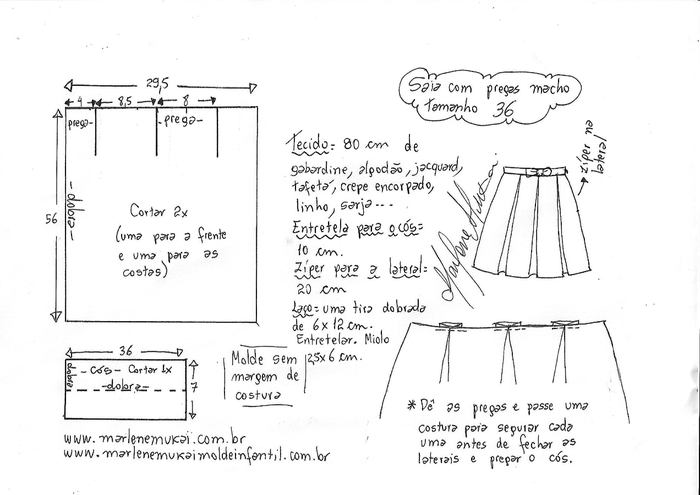 29,5
4
8,5
8
prega-
-prega-
56
-dobra-
Cortar 2x
(uma para a frente
e uma para as
costas)
36
dobra
-cós- Cortar 1x
-dobra-
7
www.marlenemukai.com.br
www.marlenemukaimoldeinfantil.com.br
Molde sem
margem de
costura
Saia com pregas macho
Tamanho 36
Tecido= 80 cm de
gabardine, algodão, jacquard,
tafetá, crepe encorpado,
linho, sarja---
Entretela para o cós=
10 cm.
Zíper para a lateral=
20 cm
Laço= uma tira dobrada
de 6x12 cm.
Entretelar. Miolo
2,5x6 cm.
Marlene Mukai
zíper na
lateral
* Dê as pregas e passe uma
costura para segurar cada
uma antes de fechar as
laterais e pregar o cós.